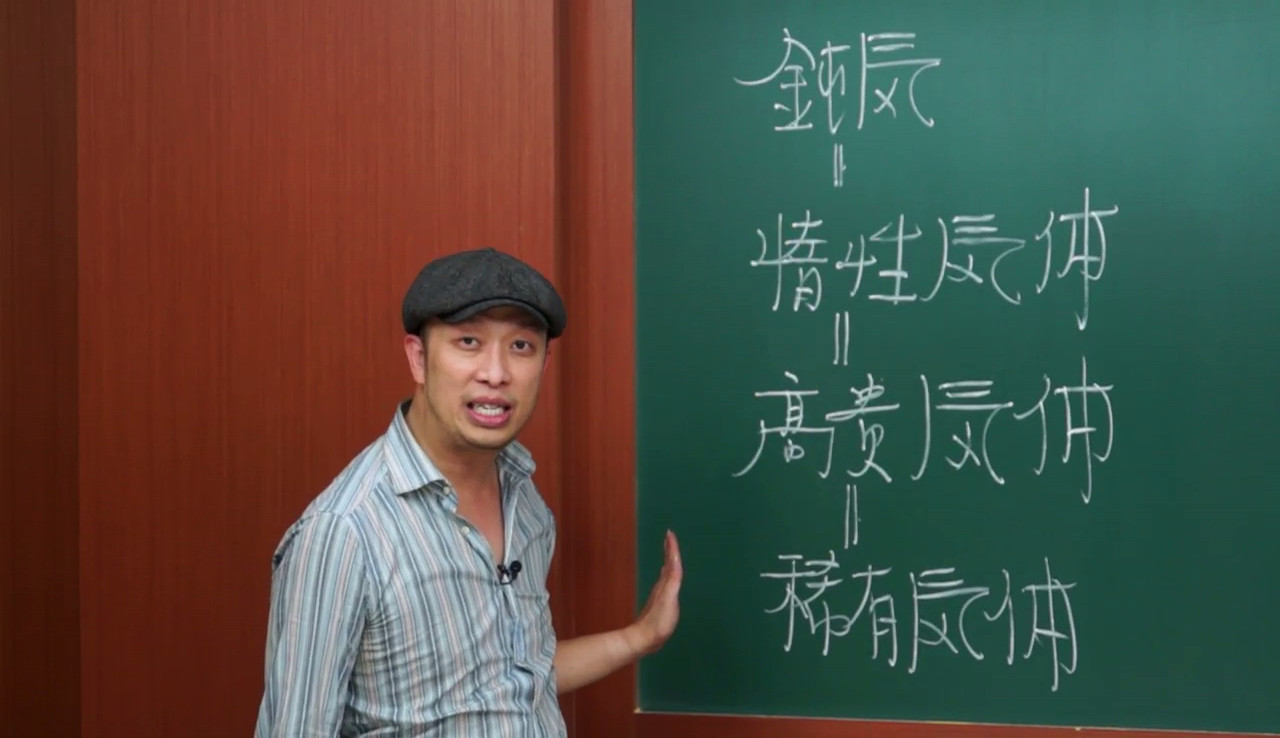 鈍気
=
惰性気体
=
高貴気体
=
稀有気体